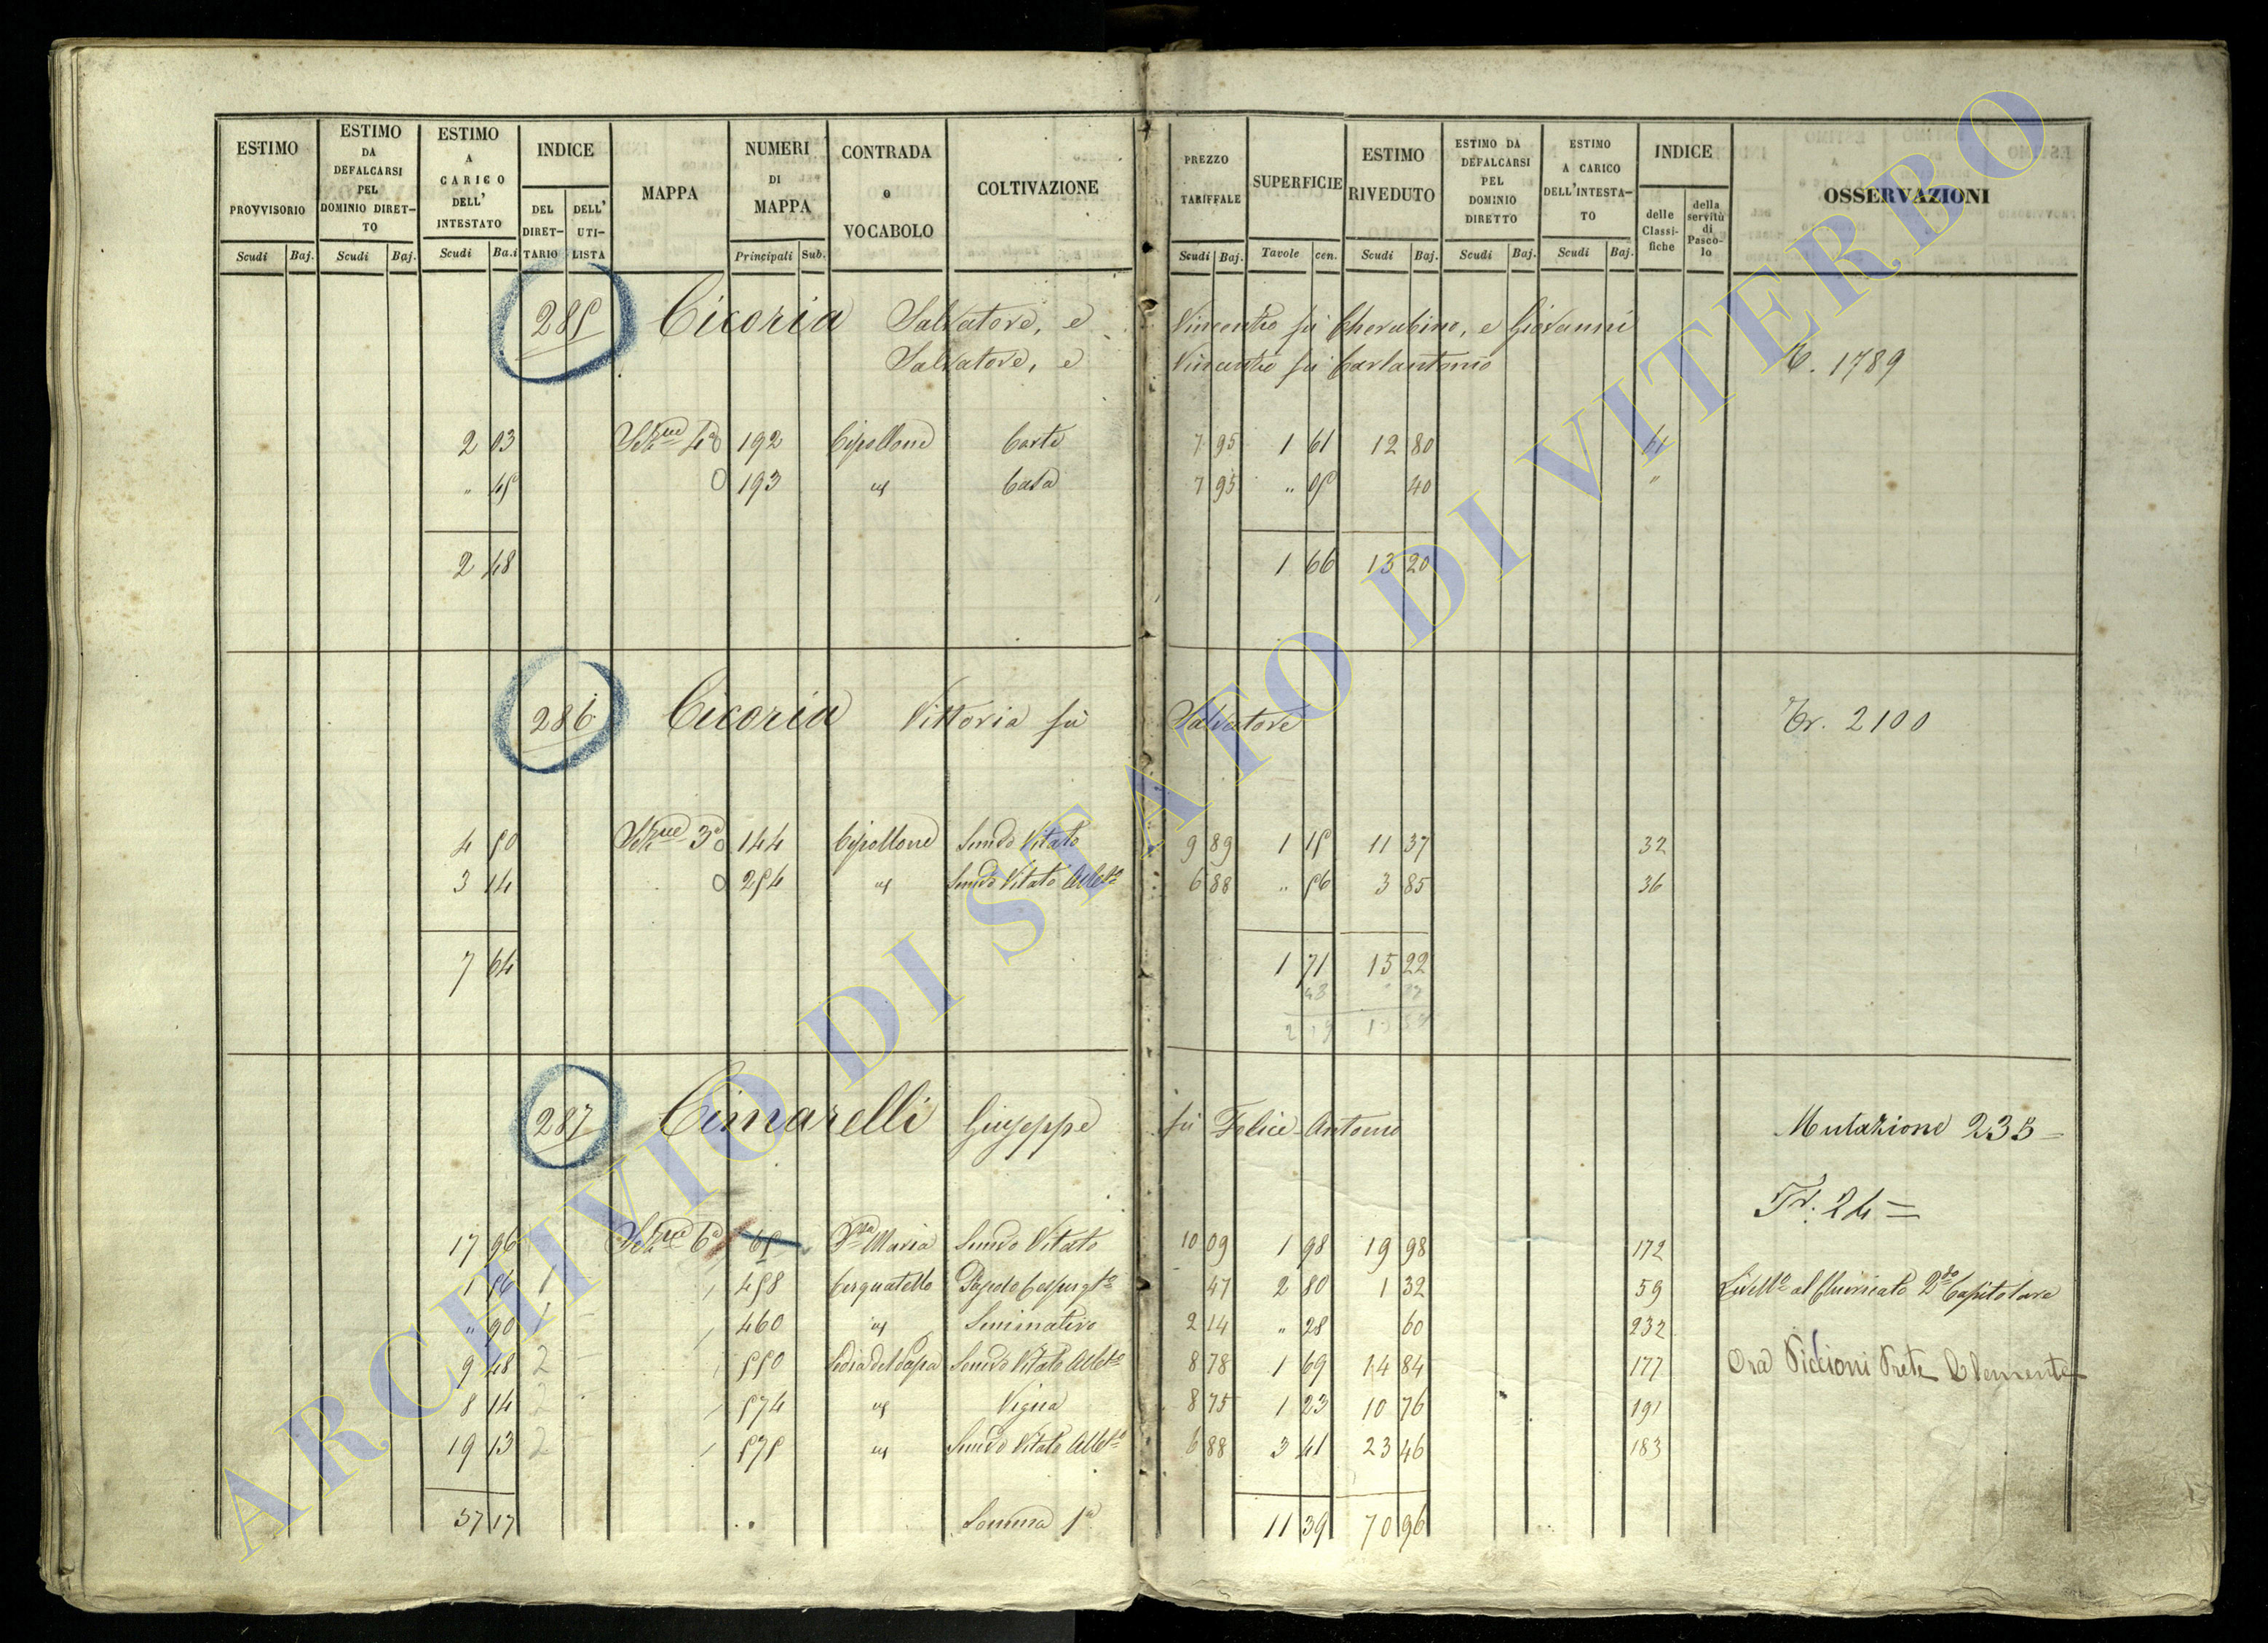 ESTIMO PROVVISORIO | ESTIMO DA DEFALCARSI PEL DOMINIO DIRETTO | ESTIMO A CARICO DELL' INTESTATO | INDICE | MAPPA | NUMERI DI MAPPA | CONTRADA o VOCABOLO | COLTIVAZIONE | PREZZO TARIFFALE | SUPERFICIE | ESTIMO RIVEDUTO | ESTIMO DA DEFALCARSI PEL DOMINIO DIRETTO | ESTIMO A CARICO DELL'INTESTATO | INDICE | OSSERVAZIONI
DEL DIRETTARIO | DELL' UTILISTA | delle Classifiche | della servitù di Pascolo
Scudi Baj. | Scudi Baj. | Scudi Ba.i | Principali Sub. | Scudi Baj. | Tavole cen. | Scudi Baj. | Scudi Baj. | Scudi Baj.
285 Cicoria Salvatore, e Vincenzo fù Cherubino, e Giovanni
Salvatore, e Vincenzo fù Carlantonio 1789
2 03 4ª 192 Cipollone 7 95 1 61 12 80 61
" 45 193 id Casa 7 95 " 05 40 "
2 48 1 66 13 20
286 Cicoria Vittoria fù Salvatore Tr. 2100
4 50 3ª 144 Cipollone Semvo Vitato 9 89 1 15 11 37 32
3 14 254 id Semvo Vitato Albto 6 88 " 56 3 85 36
7 64 1 71 15 22
287 Cimarelli Giuseppe fù Felice-Antonio Mutazione 235
Tr. 24 =
17 96 6ª 65 Maria Semvo Vitato 10 09 1 98 19 98 172
1 56 1 458 Cerquatello 47 2 80 1 32 59 Capitolare
" 90 1 460 id Seminativo 2 14 " 28 60 232
9 48 2 550 Sedia del Papa Semvo Vitato Albto 8 78 1 69 14 84 177 Ora Piccioni Prete Clemente
8 14 2 574 id Vigna 8 75 1 23 10 76 191
19 13 2 575 id Semvo Vitato Albto 6 88 3 41 23 46 183
57 17 Somma 1ª 11 39 70 96
ARCHIVIO DI STATO DI VITERBO